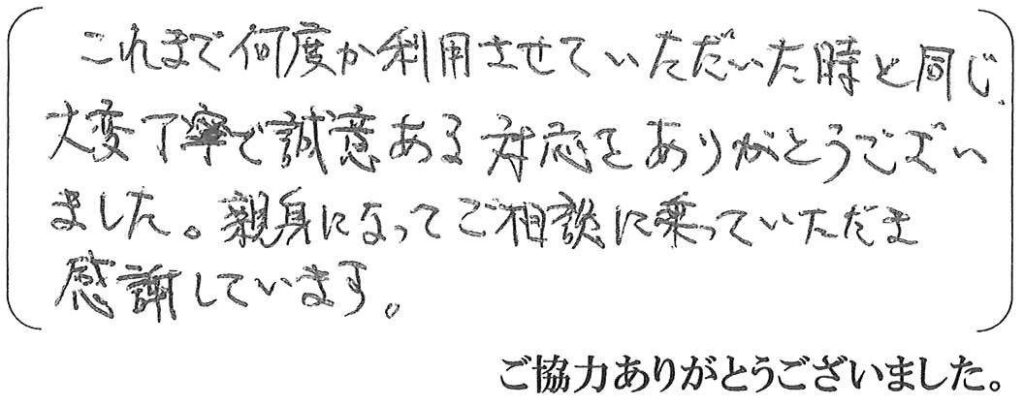 これまで何度か利用させていただいた時と同じ、
大変丁寧で誠意ある対応をありがとうござい
ました。親身になってご相談に乗っていただき
感謝しています。
ご協力ありがとうございました。